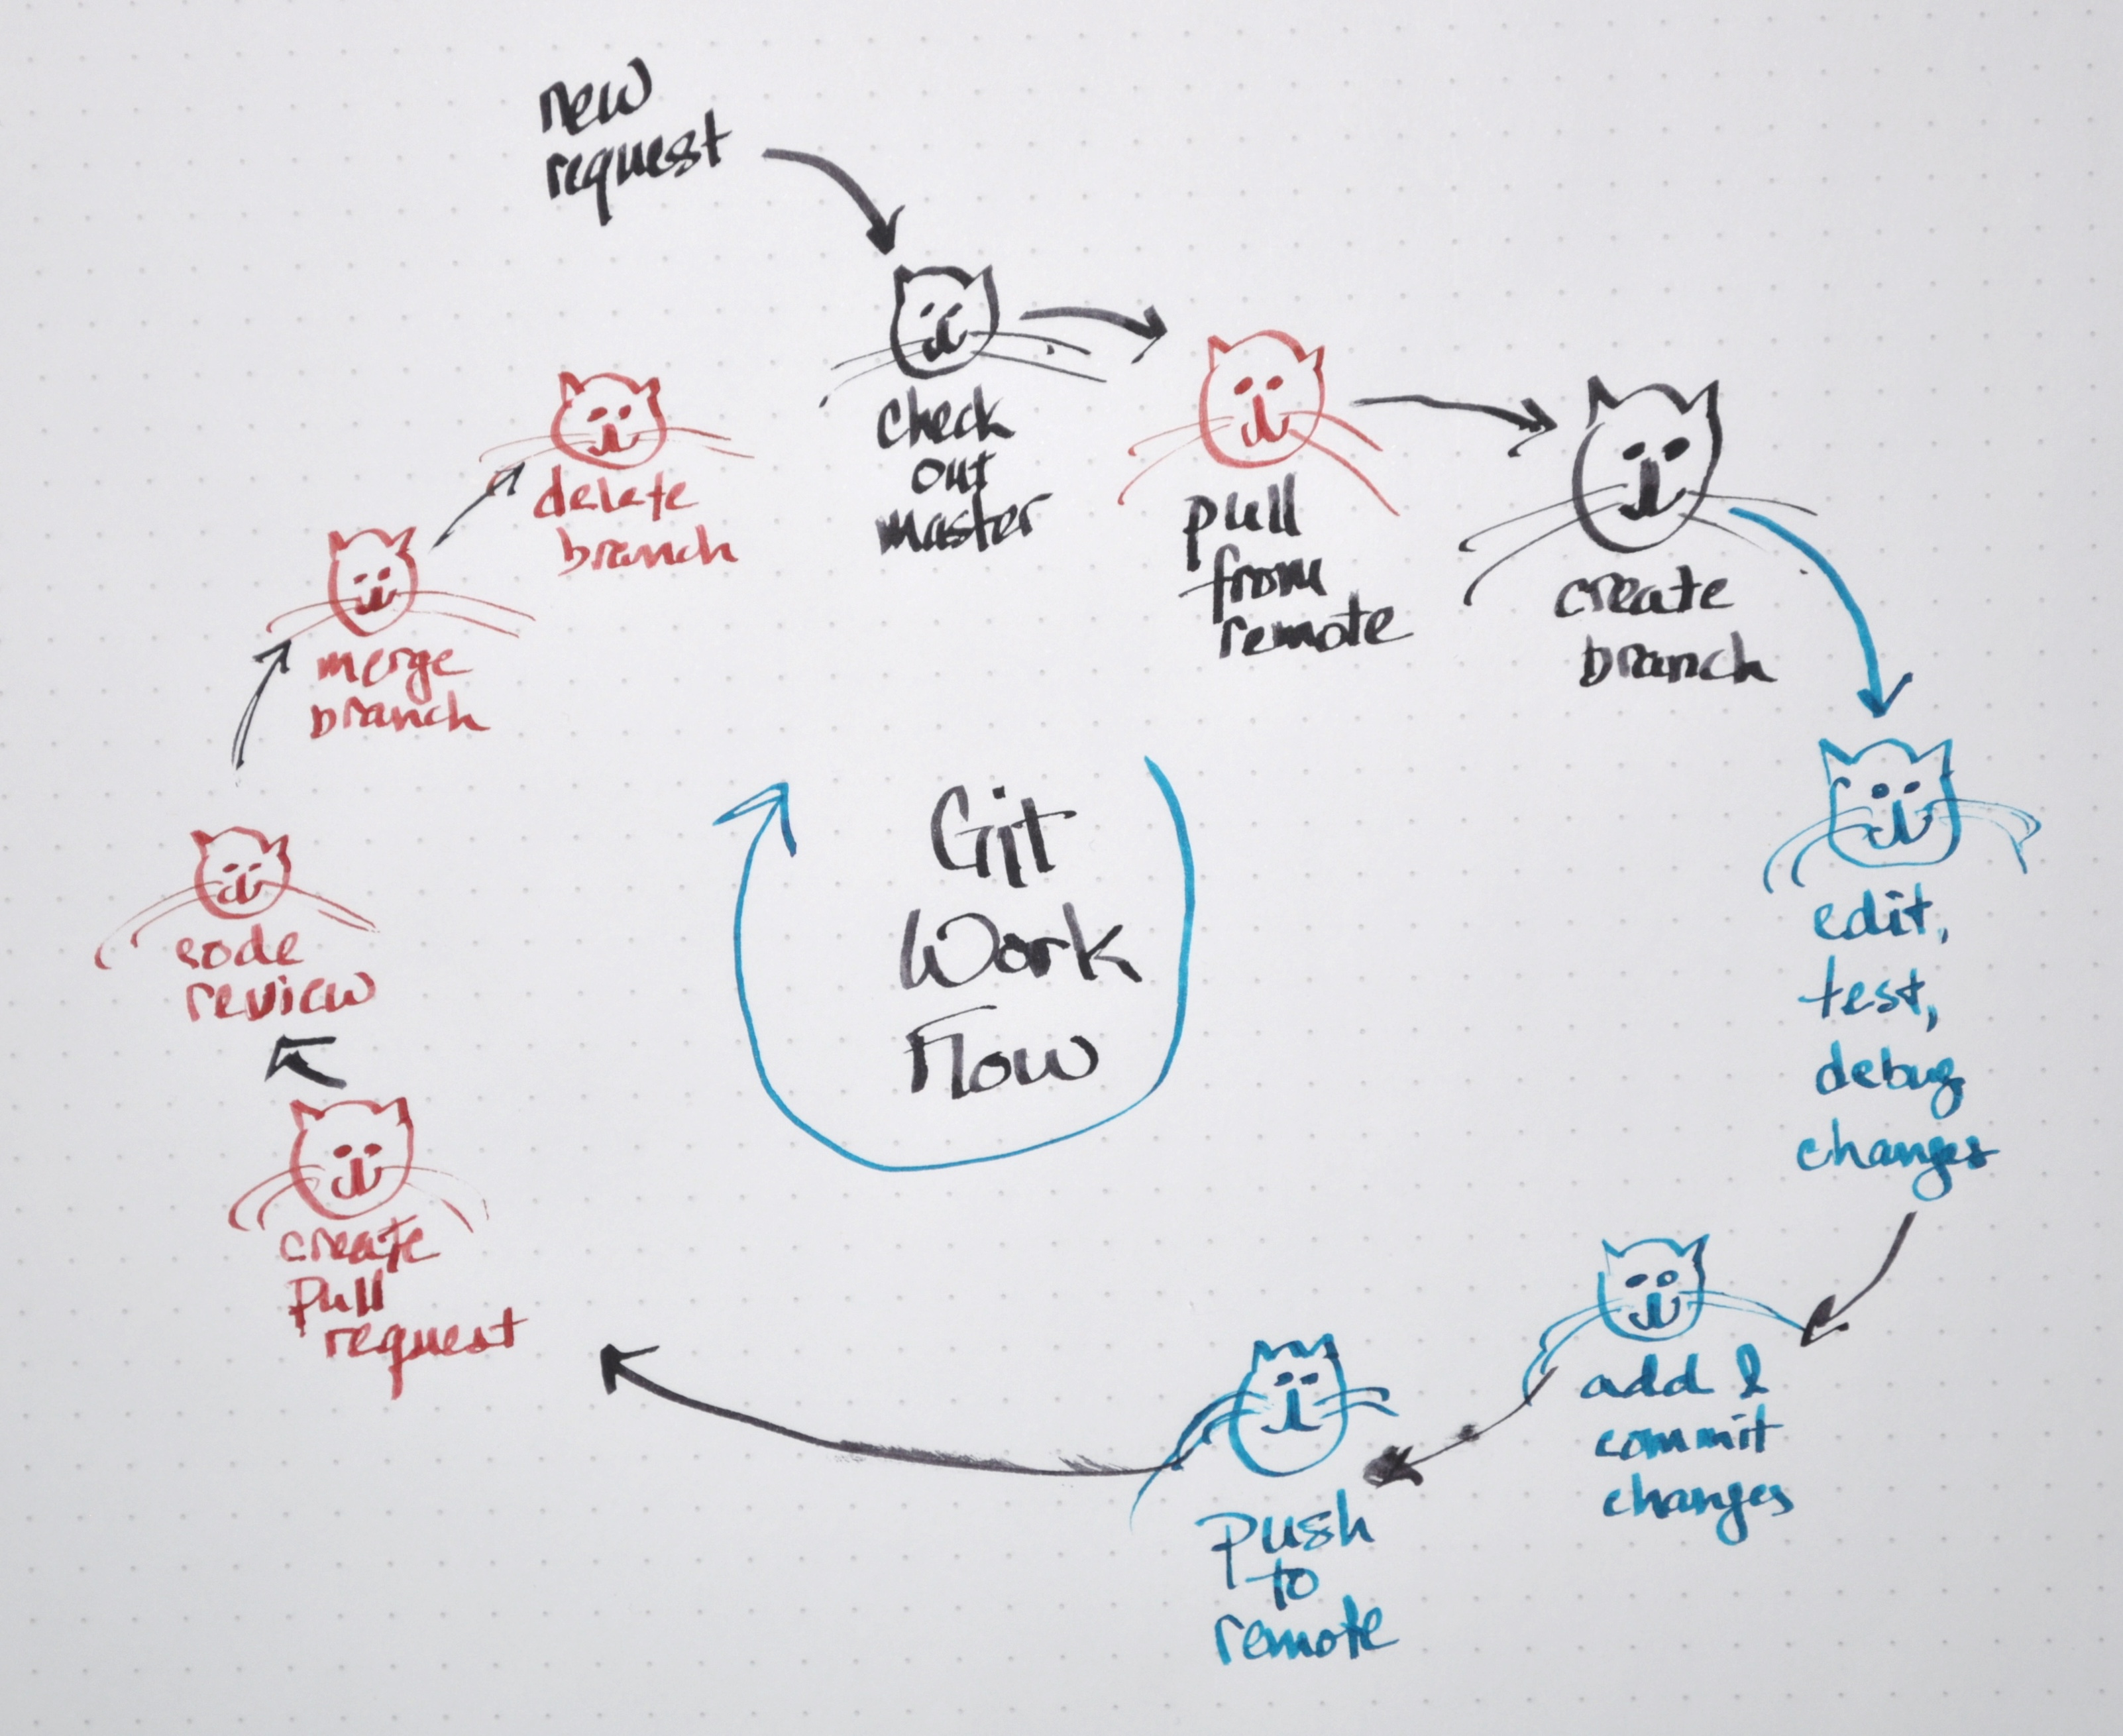 new
request
check
out
master
pull
from
remote
create
branch
edit,
test,
debug
changes
add &
commit
changes
push
to
remote
create
pull
request
code
review
merge
branch
delete
branch
Git
Work
Flow